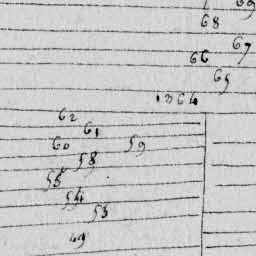 69
68
67
66
65
1364
62
61
60
59
58
55
54
53
49